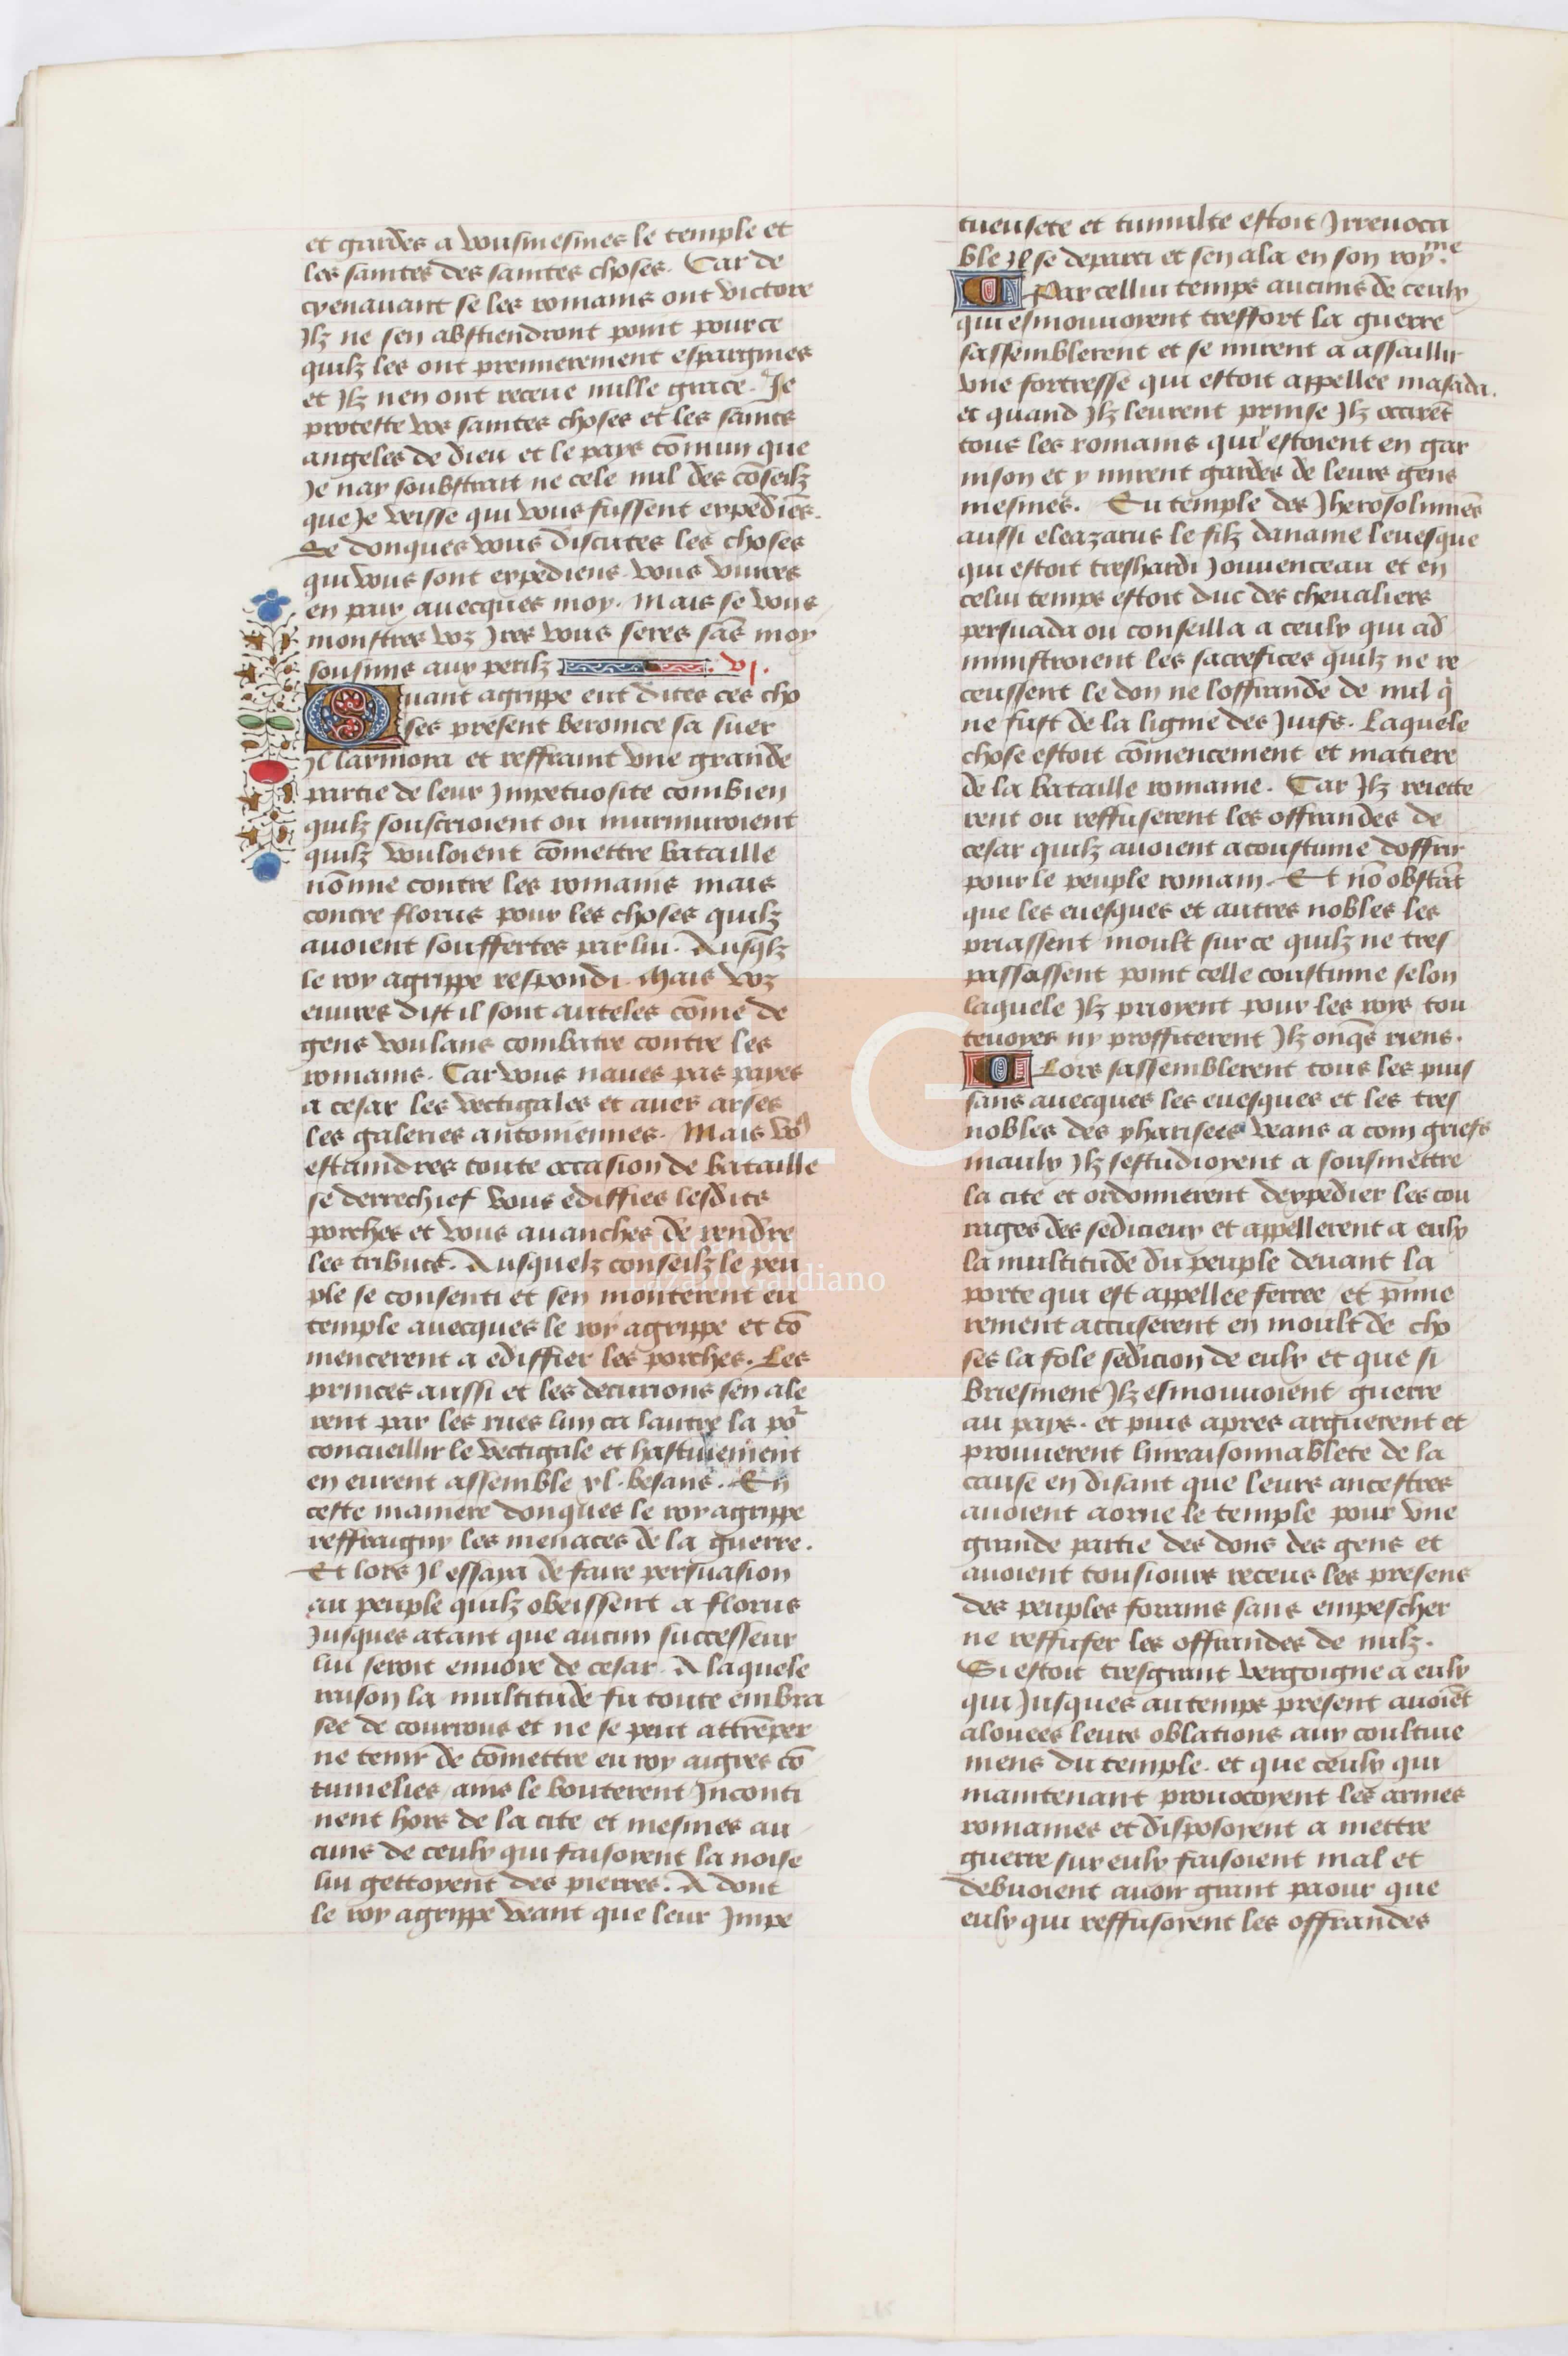 et gardes a vousmesmes le temple et
les saintes des saintes choses. Car de
cyenauant se les romains ont victore
Jlz ne sen abstiendront point pource
quilz les ont premierement espargnies
et Jlz nen ont receue nulle grace. Je
proteste voz saintes choses et les sains
angeles de dieu et le pays cōmun que
Je nay soubstrait ne cele nul des cōseilz
que Je veisse qui vous fussent expediēs.
Se donques vous discutes les choses
qui vous sont expediens vous viures
en paix auecques moy. Mais se vous
monstres voz Jres vous seres sās moy
sousmis aux perilz . vj.
Quant agrippe eut dites ces cho
ses present beronice sa suer
Jl larmoia et reffraint vne grande
partie de leur Jmpetuosite combien
quilz souscrioient ou murmuroient
quilz vouloient cōmettre bataille
nōmie contre les romains mais
contre florus pour les choses quilz
auoient souffertes par lui. Ausqlz
le roy agrippe respondi. Mais voz
euures dist il sont auteles cōme de
gens voulans combatre contre les
romains. Car vous naues pas paies
a cesar les vectigales et aues arses
les galeries antoniennes. Mais vo9
estaindres toute occasion de bataille
se derrechief vous ediffies lesdits
porches et vous auanches de rendre
les tributs. Ausquelz conseilz le peu
ple se consenti et sen monterent eu
temple auecques le roy agrippe et cō
mencerent a ediffier les porches. Les
princes aussi et les decurions sen ale
rent par les rues lun ca lautre la por
concueillir le vectigale et hastiuement
en eurent assemble xl. besans. En
ceste maniere donques le roy agrippe
reffraigny les menaces de la guerre.
Et lors Jl essaya de faire persuasion
au peuple quilz obeissent a florus
Jusques atant que aucun successeur
lui seroit enuoye de cesar. A laquele
raison la multitude fu toute embra
see de courrous et ne se peut attrēper
ne tenir de cōmettre eu roy aigres cō
tumelies ains le bouterent Jnconti
nent hors de la cite et mesmes au
cuns de ceulx qui faisoyent la noise
lui gettoyent des pierres. A dont
le roy agrippe veant que leur Jmpe
tueusete et tumulte estoit Jrreuoca
ble Jl se departi et sen ala en son roy.me
Par cellui temps aucuns de ceulx
qui esmouuoyent treffort la guerre
sassemblerent et se mirent a assaillir
vne fortresse qui estoit appellee masada.
et quand Jlz leurent prinse Jlz occirēt
tous les romains qui estoient en gar
nison et y mirent gardes de leurs gens
mesmes. Eu temple des Jherosolimiēs
aussi eleazarus le filz daname leuesque
qui estoit treshardi Jouuenceau et en
celui temps estoit duc des cheualiers
persuada ou conseilla a ceulx qui ad
ministroient les sacrefices quilz ne re
ceussent le don ne loffrande de nul q
ne fust de la lignie des Juifs. Laquele
chose estoit cōmencement et matiere
de la bataille romaine. Car Jlz reiette
rent ou reffuserent les offrandes de
cesar quilz auoient acoustume doffrir
pour le peuple romain. Et nō obstāt
que les euesques et autres nobles les
priassent moult sur ce quilz ne tres
passassent point celle coustume selon
laquele Jlz prioyent pour les roys tou
teuoyes ny proffiterent Jlz onqs riens.
Lors sassemblerent tous les puis
sans auecques les euesques et les tres
nobles des pharisees veans a com griefs
maulx Jlz sestudioyent a sousmettre
la cite et ordonnerent dexpedier les cou
rages des sedicieux et appellerent a eulx
la multitude du peuple deuant la
porte qui est appellee ferree et p̄mie
rement accuserent en moult de cho
ses la fole sedicion de eulx et que si
briesment Jlz esmouuoient guerre
au pays. et puis apres arguerent et
prouuerent linraisonnablete de la
cause en disant que leurs ancestres
auoient aorne le temple pour vne
grande partie des dons des gens et
auoient tousiours receus les presens
des peuples forains sans empescher
ne reffuser les offrandes de nulz.
Si estoit tresgrant vergoigne a eulx
qui Jusques au temps present auoiēt
alouees leurs oblations aux coultiue
mens du temple. et que ceulx qui
maintenant prouocoyent les armes
romaines et disposoyent a mettre
guerre sur eulx faisoient mal et
debuoient auoir grant paour que
eulx qui reffusoyent les offrandes
FLG
Fundación
Lázaro Galdiano